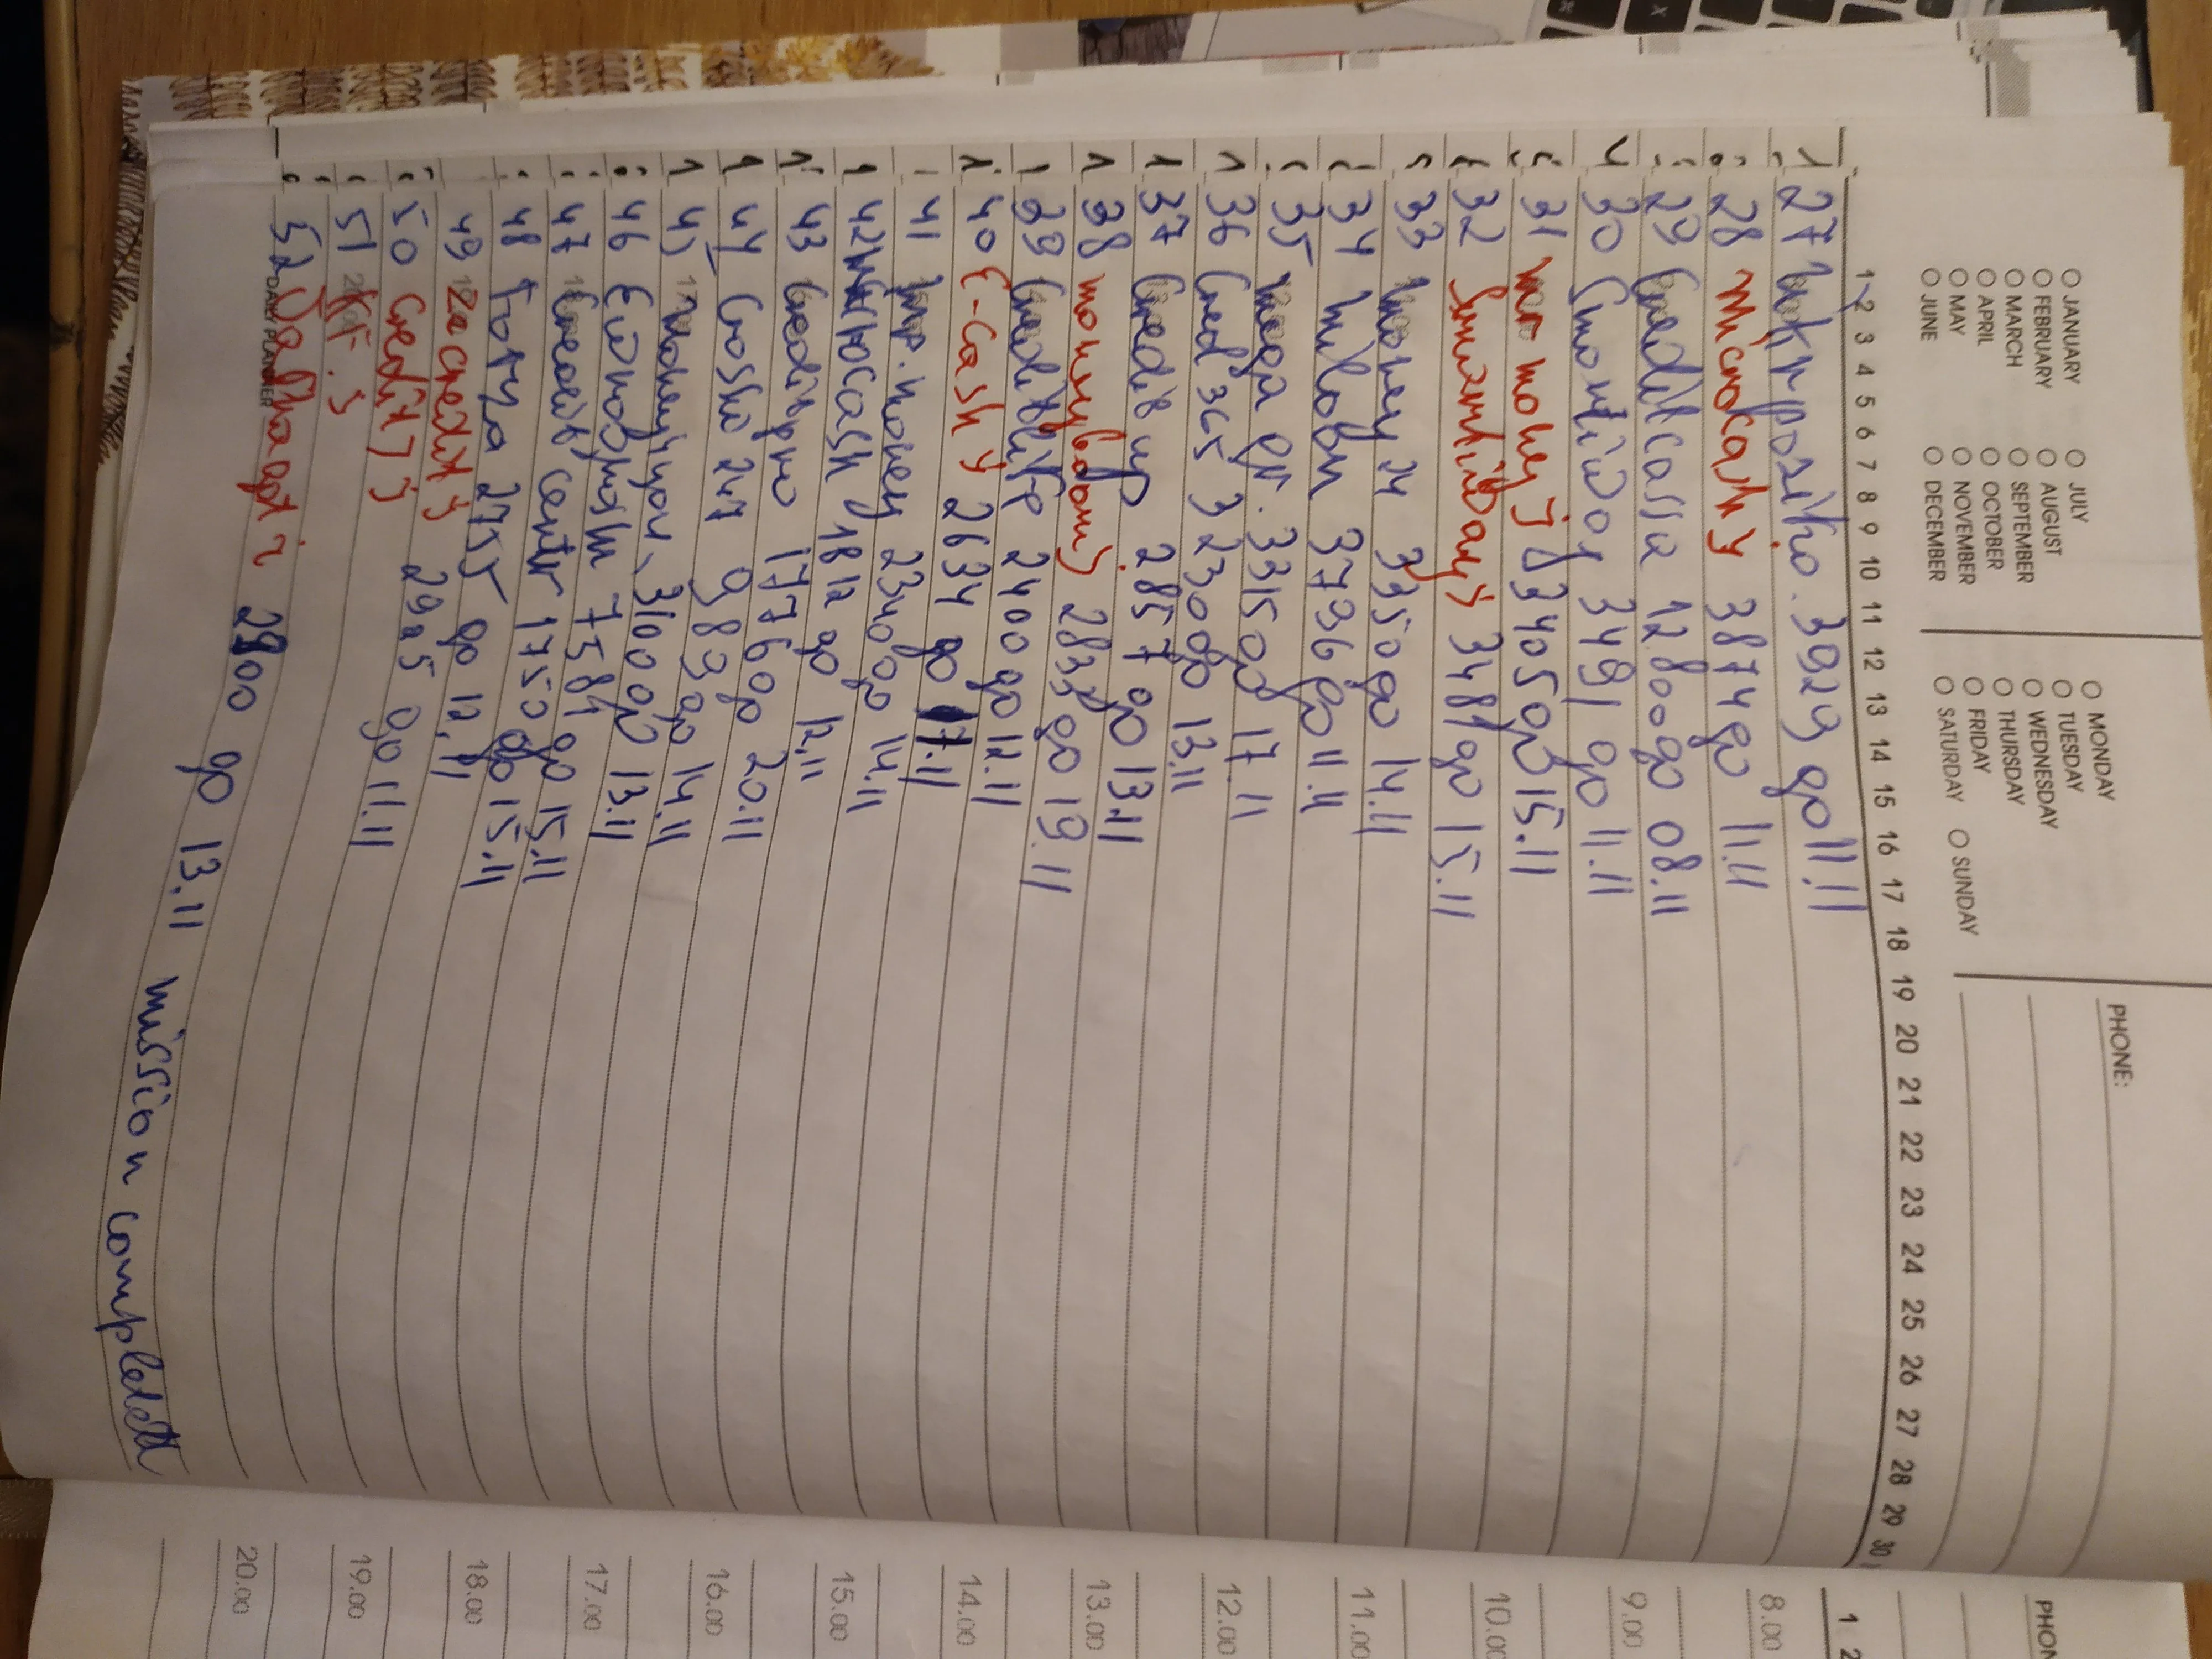 JANUARY JULY MONDAY
FEBRUARY AUGUST TUESDAY
MARCH SEPTEMBER WEDNESDAY
APRIL OCTOBER THURSDAY
MAY NOVEMBER FRIDAY
JUNE DECEMBER SATURDAY SUNDAY
PHONE:
1 2 3 4 5 6 7 8 9 10 11 12 13 14 15 16 17 18 19 20 21 22 23 24 25 26 27 28 29 30
27 3929 go 11.11
28 Microcash 3874 go 11.11
29 Creditcassa 12.800 go 08.11
30 Smartivay 3491 go 11.11
31 mr money 83405 go 15.11
32 3481 go 15.11
33 money 24 3350 go 14.11
34 miloan 3736 go 11.11
35 mega gr. 33150 go 17.11
36 Cred 365 3230 go 13.11
37 Credit up 2857 go 13.11
38 moneyboom 2833 go 19.11
39 Creditlife 2400 go 12.11
40 E-cash 2634 go 17.11
41 money 2340 go 14.11
42 cash 1812 go 12.11
43 Creditpro 17760 go 20.11
44 Cossa 247 983 go 14.11
45 moneyyou 3100 go 13.11
46 7584 go 15.11
47 Credit center 1750 go 15.11
48 2755 go 12.11
49 Zacredit
50 Credit 7 2925 go 11.11
51 KF.
52 2900 go 13.11 mission completed
DAILY PLANNER
PHON
1 2
8.00
9.00
10.00
11.00
12.00
13.00
14.00
15.00
16.00
17.00
18.00
19.00
20.00